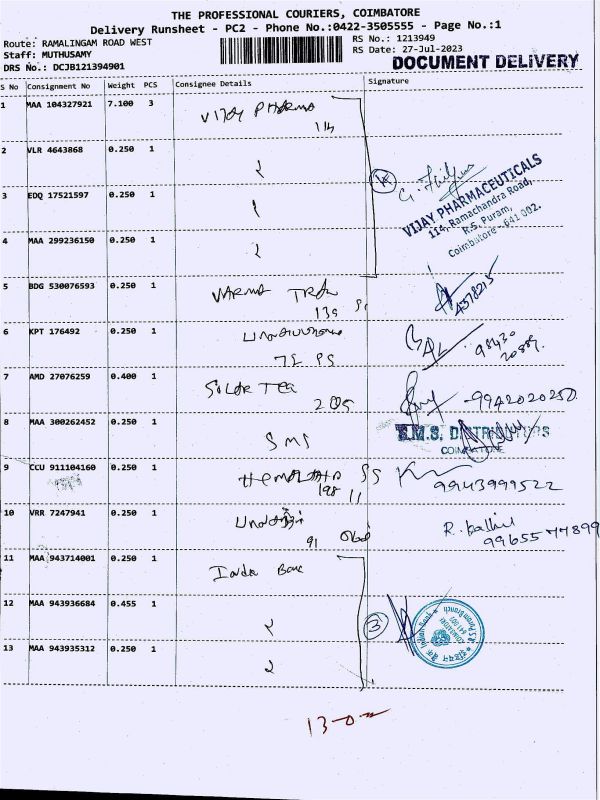 THE PROFESSIONAL COURIERS, COIMBATORE
Delivery Runsheet - PC2 - Phone No.:0422-3505555 - Page No.:1
Route: RAMALINGAM ROAD WEST
RS No.: 1213949
Staff: MUTHUSAMY
RS Date: 27-Jul-2023
DRS No.: DCJB121394901
DOCUMENT DELIVERY
S No Consignment No Weight PCS Consignee Details Signature
1 MAA 104327921 7.100 3 VIJAY PHARMA
114
2 VLR 4643868 0.250 1
3 EDQ 17521597 0.250 1
4 MAA 299236150 0.250 1
4
VIJAY PHARMACEUTICALS
114, Ramachandra Road,
R.S. Puram,
Coimbatore - 641 002.
5 BDG 530076593 0.250 1 VARMA
130
4378215
6 KPT 176492 0.250 1
98430
20889.
7 AMD 27076259 0.400 1 SOLAR TEC
205
9942020250
8 MAA 300262452 0.250 1 SMS
S.M.S. DISTRIBUTORS
COIMBATORE
9 CCU 911104160 0.250 1 SS
198 11
9943999522
10 VRR 7247941 0.250 1
91
R.
9965577899
11 MAA 943714001 0.250 1 India Bank
12 MAA 943936684 0.455 1
13 MAA 943935312 0.250 1
3
Indian Bank
R.S.Puram Branch
COIMBATORE
641 002
इंडियन बैंक
13-0